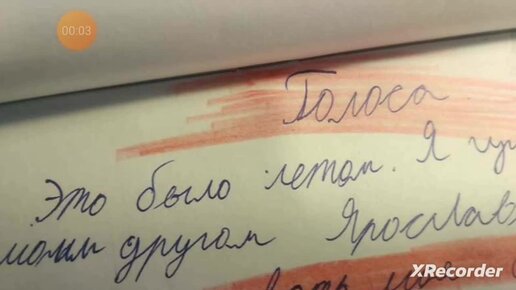 00:03
Голоса.
Это было летом. Я
моим другом Ярослав
XRecorder